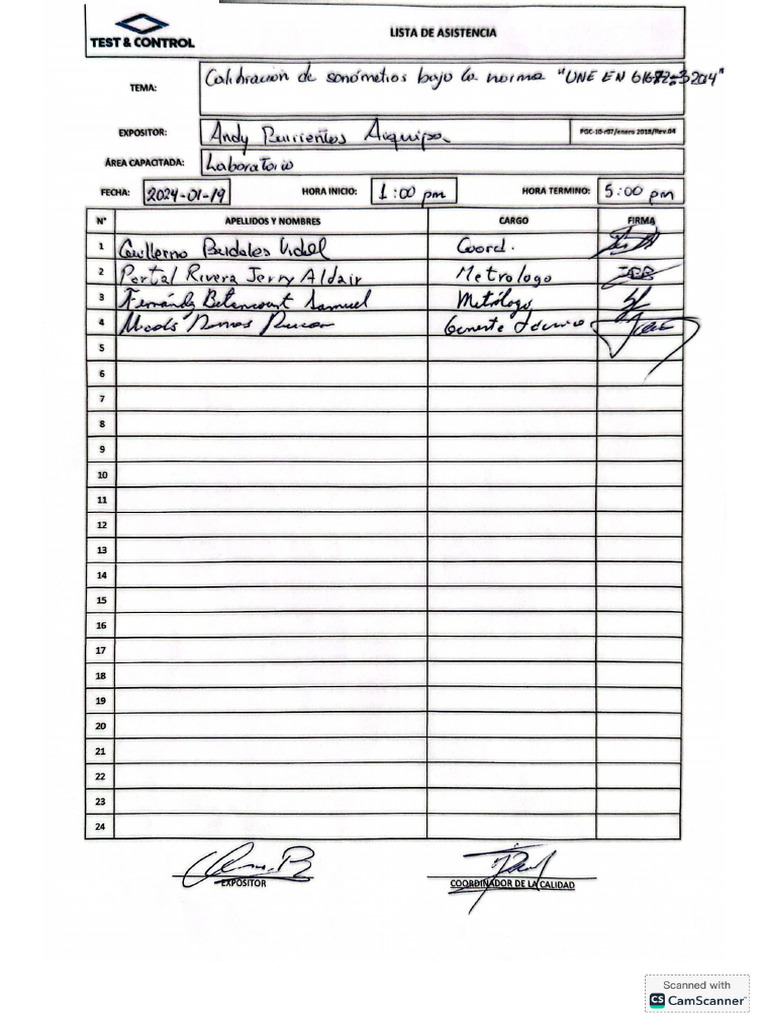 TEST & CONTROL
LISTA DE ASISTENCIA
TEMA: Calibracion de sonómetros bajo la norma "UNE EN 61672-3 2014"
EXPOSITOR: Andy Barrientos Arequipa
PGC-10-r07/enero 2018/Rev.04
ÁREA CAPACITADA: Laboratorio
FECHA: 2024-01-19 HORA INICIO: 1:00 pm HORA TERMINO: 5:00 pm
N° APELLIDOS Y NOMBRES CARGO FIRMA
1 Guillermo Vidal Coord.
2 Portal Rivera Jerry Aldair Metrologo
3 Fernández Betancourt Samuel Metrólogo
4 Ramos Gerente técnico
5
6
7
8
9
10
11
12
13
14
15
16
17
18
19
20
21
22
23
24
EXPOSITOR COORDINADOR DE LA CALIDAD
Scanned with
CS CamScanner